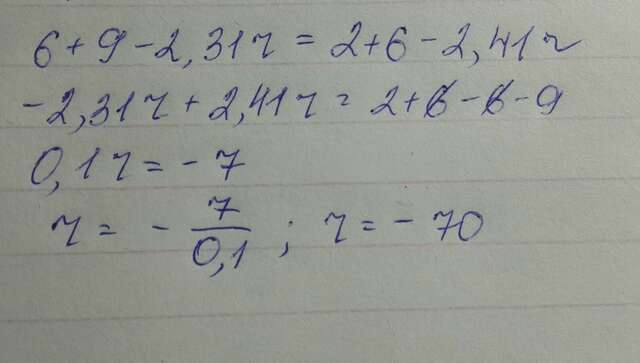 6 + 9 - 2,31r = 2+6 - 2,41r
-2,31r + 2,41r = 2+6-6-9
0,1r = - 7
r = - 7/0,1 ; r = - 70